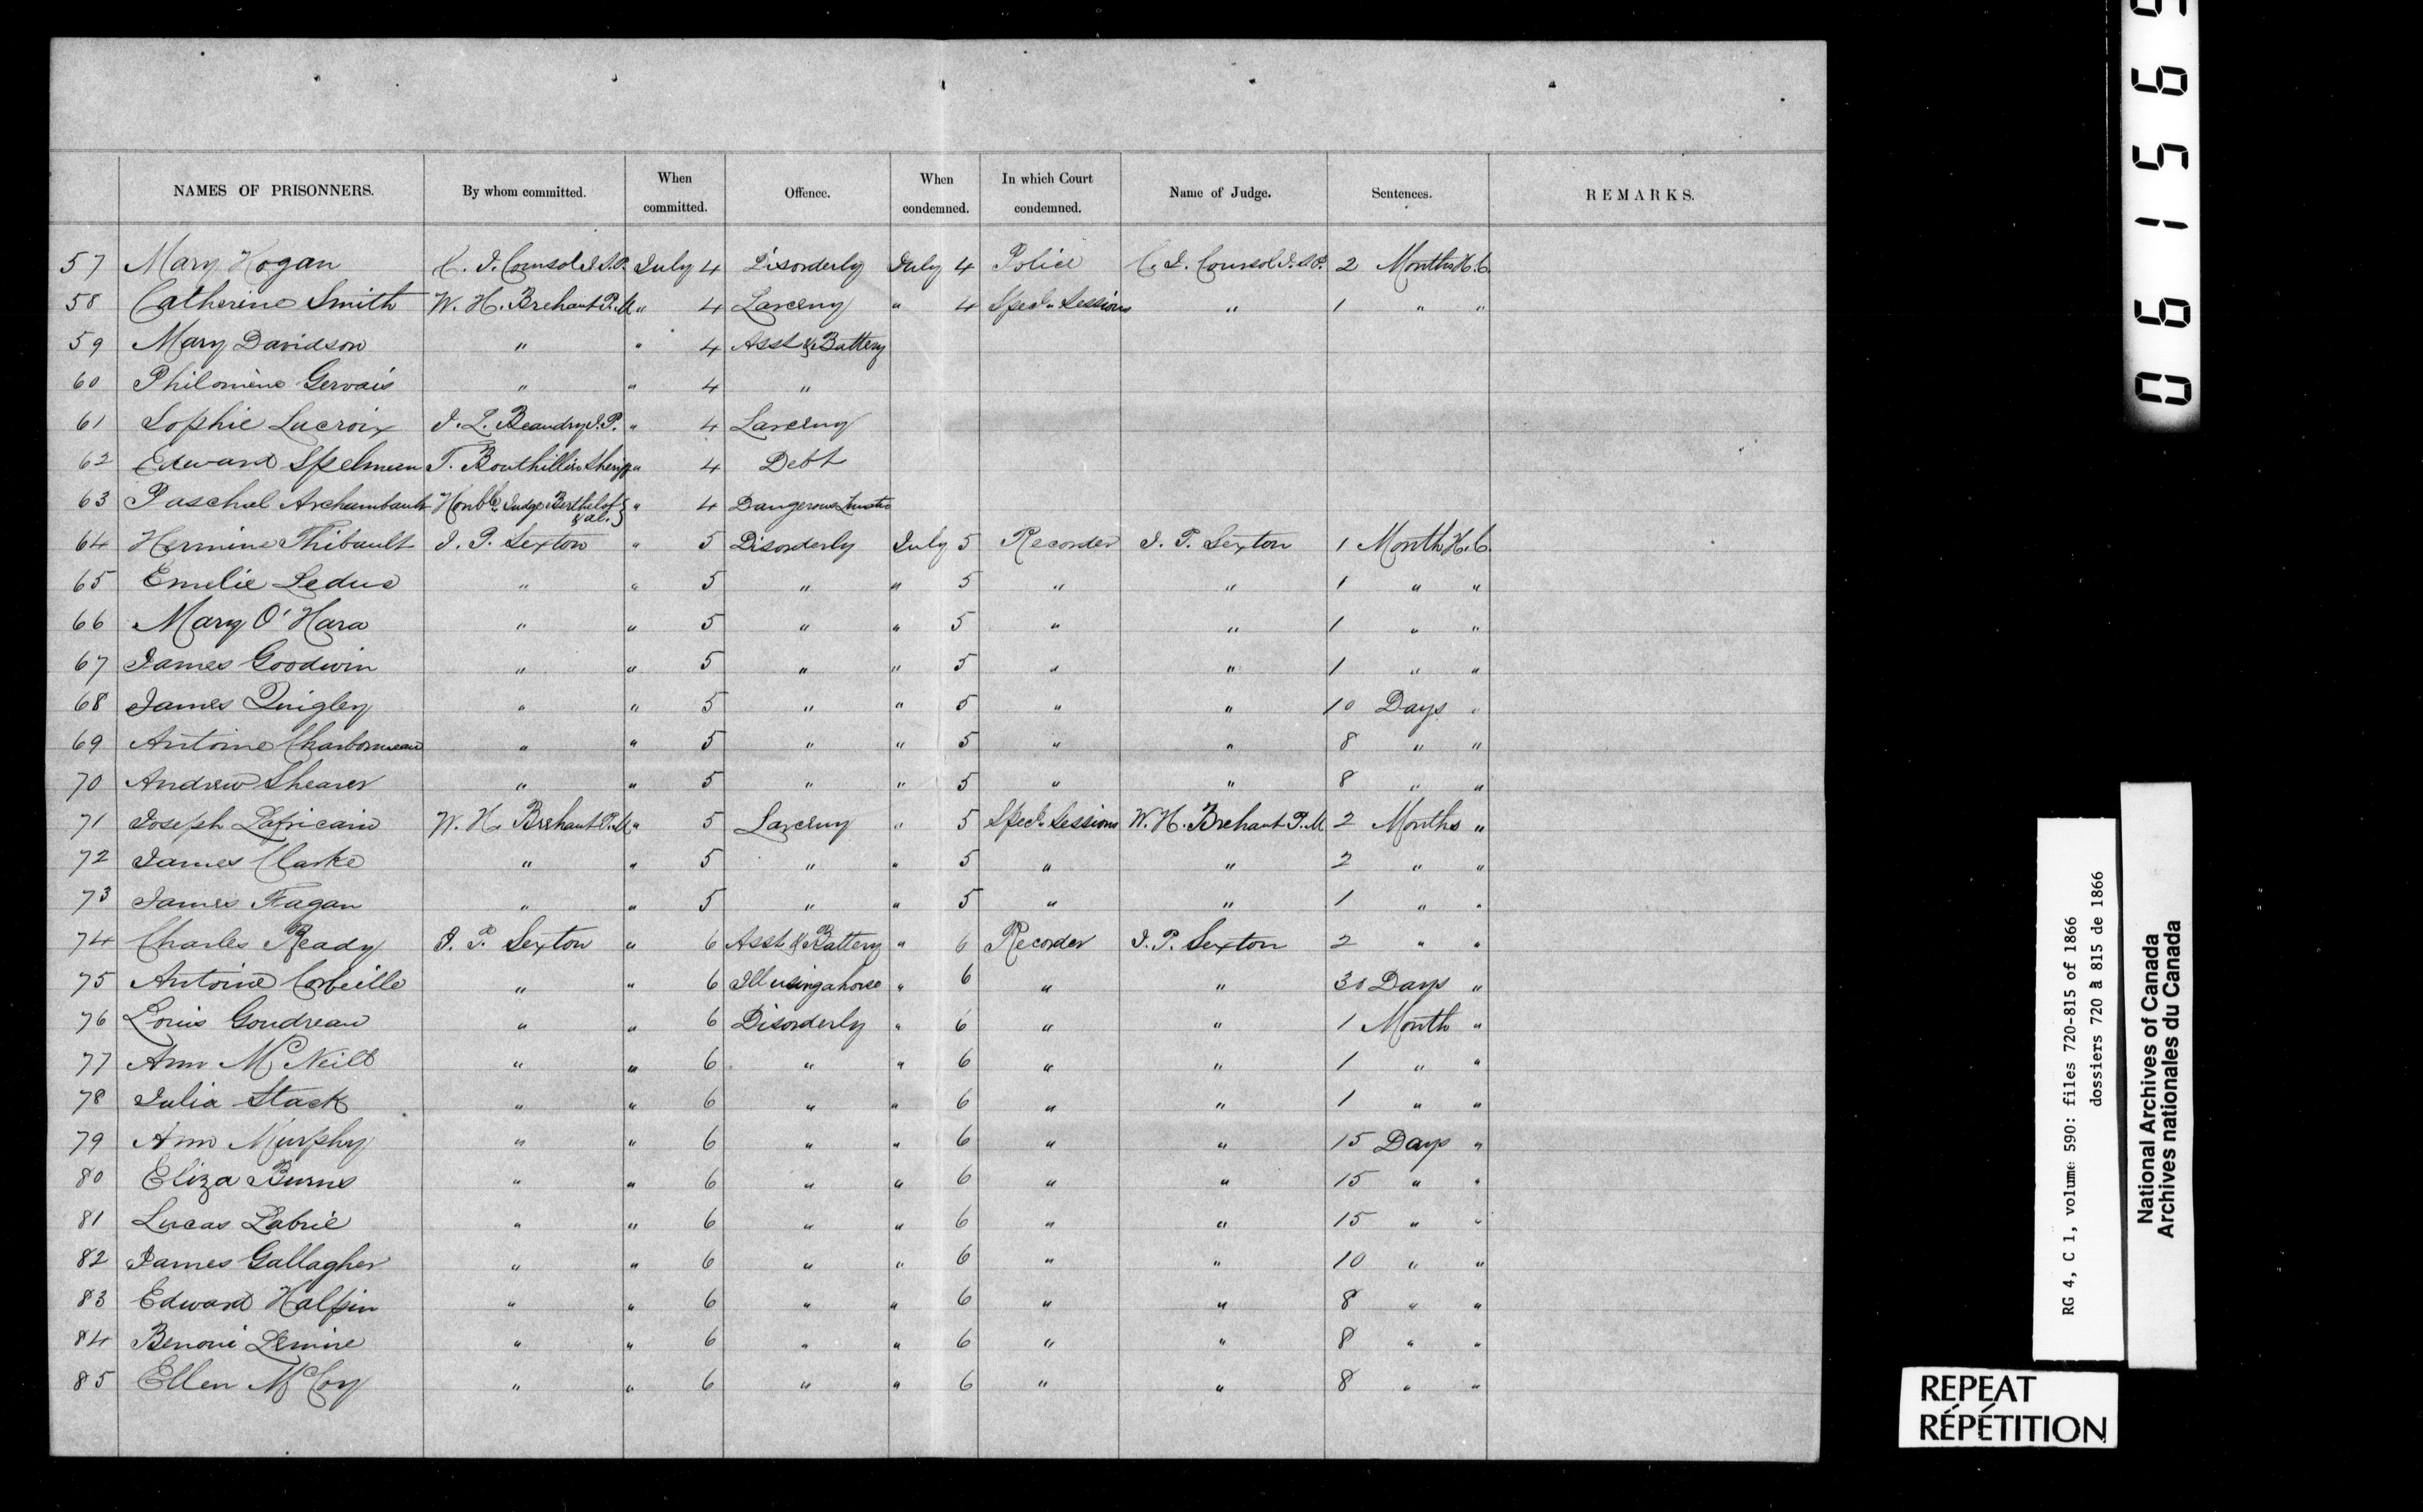 NAMES OF PRISONNERS. By whom committed. When committed. Offence. When condemned. In which Court condemned. Name of Judge. Sentences. REMARKS.
57 Mary Hogan C. J. Coursol J.S.P. July 4 Disorderly July 4 Police C. J. Coursol J.S.P. 2 Months H.L.
58 Catherine Smith W. H. Brehaut P.M. " 4 Larceny " 4 Specl. Sessions " 1 " "
59 Mary Davidson " " 4 Asst. & Battery
60 Philomène Gervais " " 4 "
61 Sophie Lacroix J. L. Beaudry J.P. " 4 Larceny
62 Edward Spelman T. Bouthillier Sheriff " 4 Debt
63 Paschal Archambault Honble. Judge Berthelot & al. " 4 Dangerous Lunatic
64 Hermine Thibault J. P. Sexton " 5 Disorderly July 5 Recorder J. P. Sexton 1 Month H.L.
65 Emelie Leduc " " 5 " " 5 " " 1 " "
66 Mary O'Hara " " 5 " " 5 " " 1 " "
67 James Goodwin " " 5 " " 5 " " 1 " "
68 James Quigley " " 5 " " 5 " " 10 Days "
69 Antoine Charbonneau " " 5 " " 5 " " 8 " "
70 Andrew Shearer " " 5 " " 5 " " 8 " "
71 Joseph Lafricain W. H. Brehaut P.M. " 5 Larceny " 5 Specl. Sessions W. H. Brehaut P.M. 2 Months "
72 James Clarke " " 5 " " 5 " " 2 " "
73 James Fagan " " 5 " " 5 " " 1 " "
74 Charles Ready J. P. Sexton " 6 Asst. & Battery " 6 Recorder J. P. Sexton 2 " "
75 Antoine Corbeille " " 6 Ill using a horse " 6 " " 30 Days "
76 Louis Goudreau " " 6 Disorderly " 6 " " 1 Month "
77 Ann McNeill " " 6 " " 6 " " 1 " "
78 Julia Stack " " 6 " " 6 " " 1 " "
79 Ann Murphy " " 6 " " 6 " " 15 Days "
80 Eliza Burns " " 6 " " 6 " " 15 " "
81 Lucas Labrie " " 6 " " 6 " " 15 " "
82 James Gallagher " " 6 " " 6 " " 10 " "
83 Edward Halpin " " 6 " " 6 " " 8 " "
84 Benoni Lemire " " 6 " " 6 " " 8 " "
85 Ellen McCoy " " 6 " " 6 " " 8 " "
RG 4, C 1, volume 590: files 720-815 of 1866
dossiers 720 à 815 de 1866
National Archives of Canada
Archives nationales du Canada
REPEAT
RÉPÉTITION